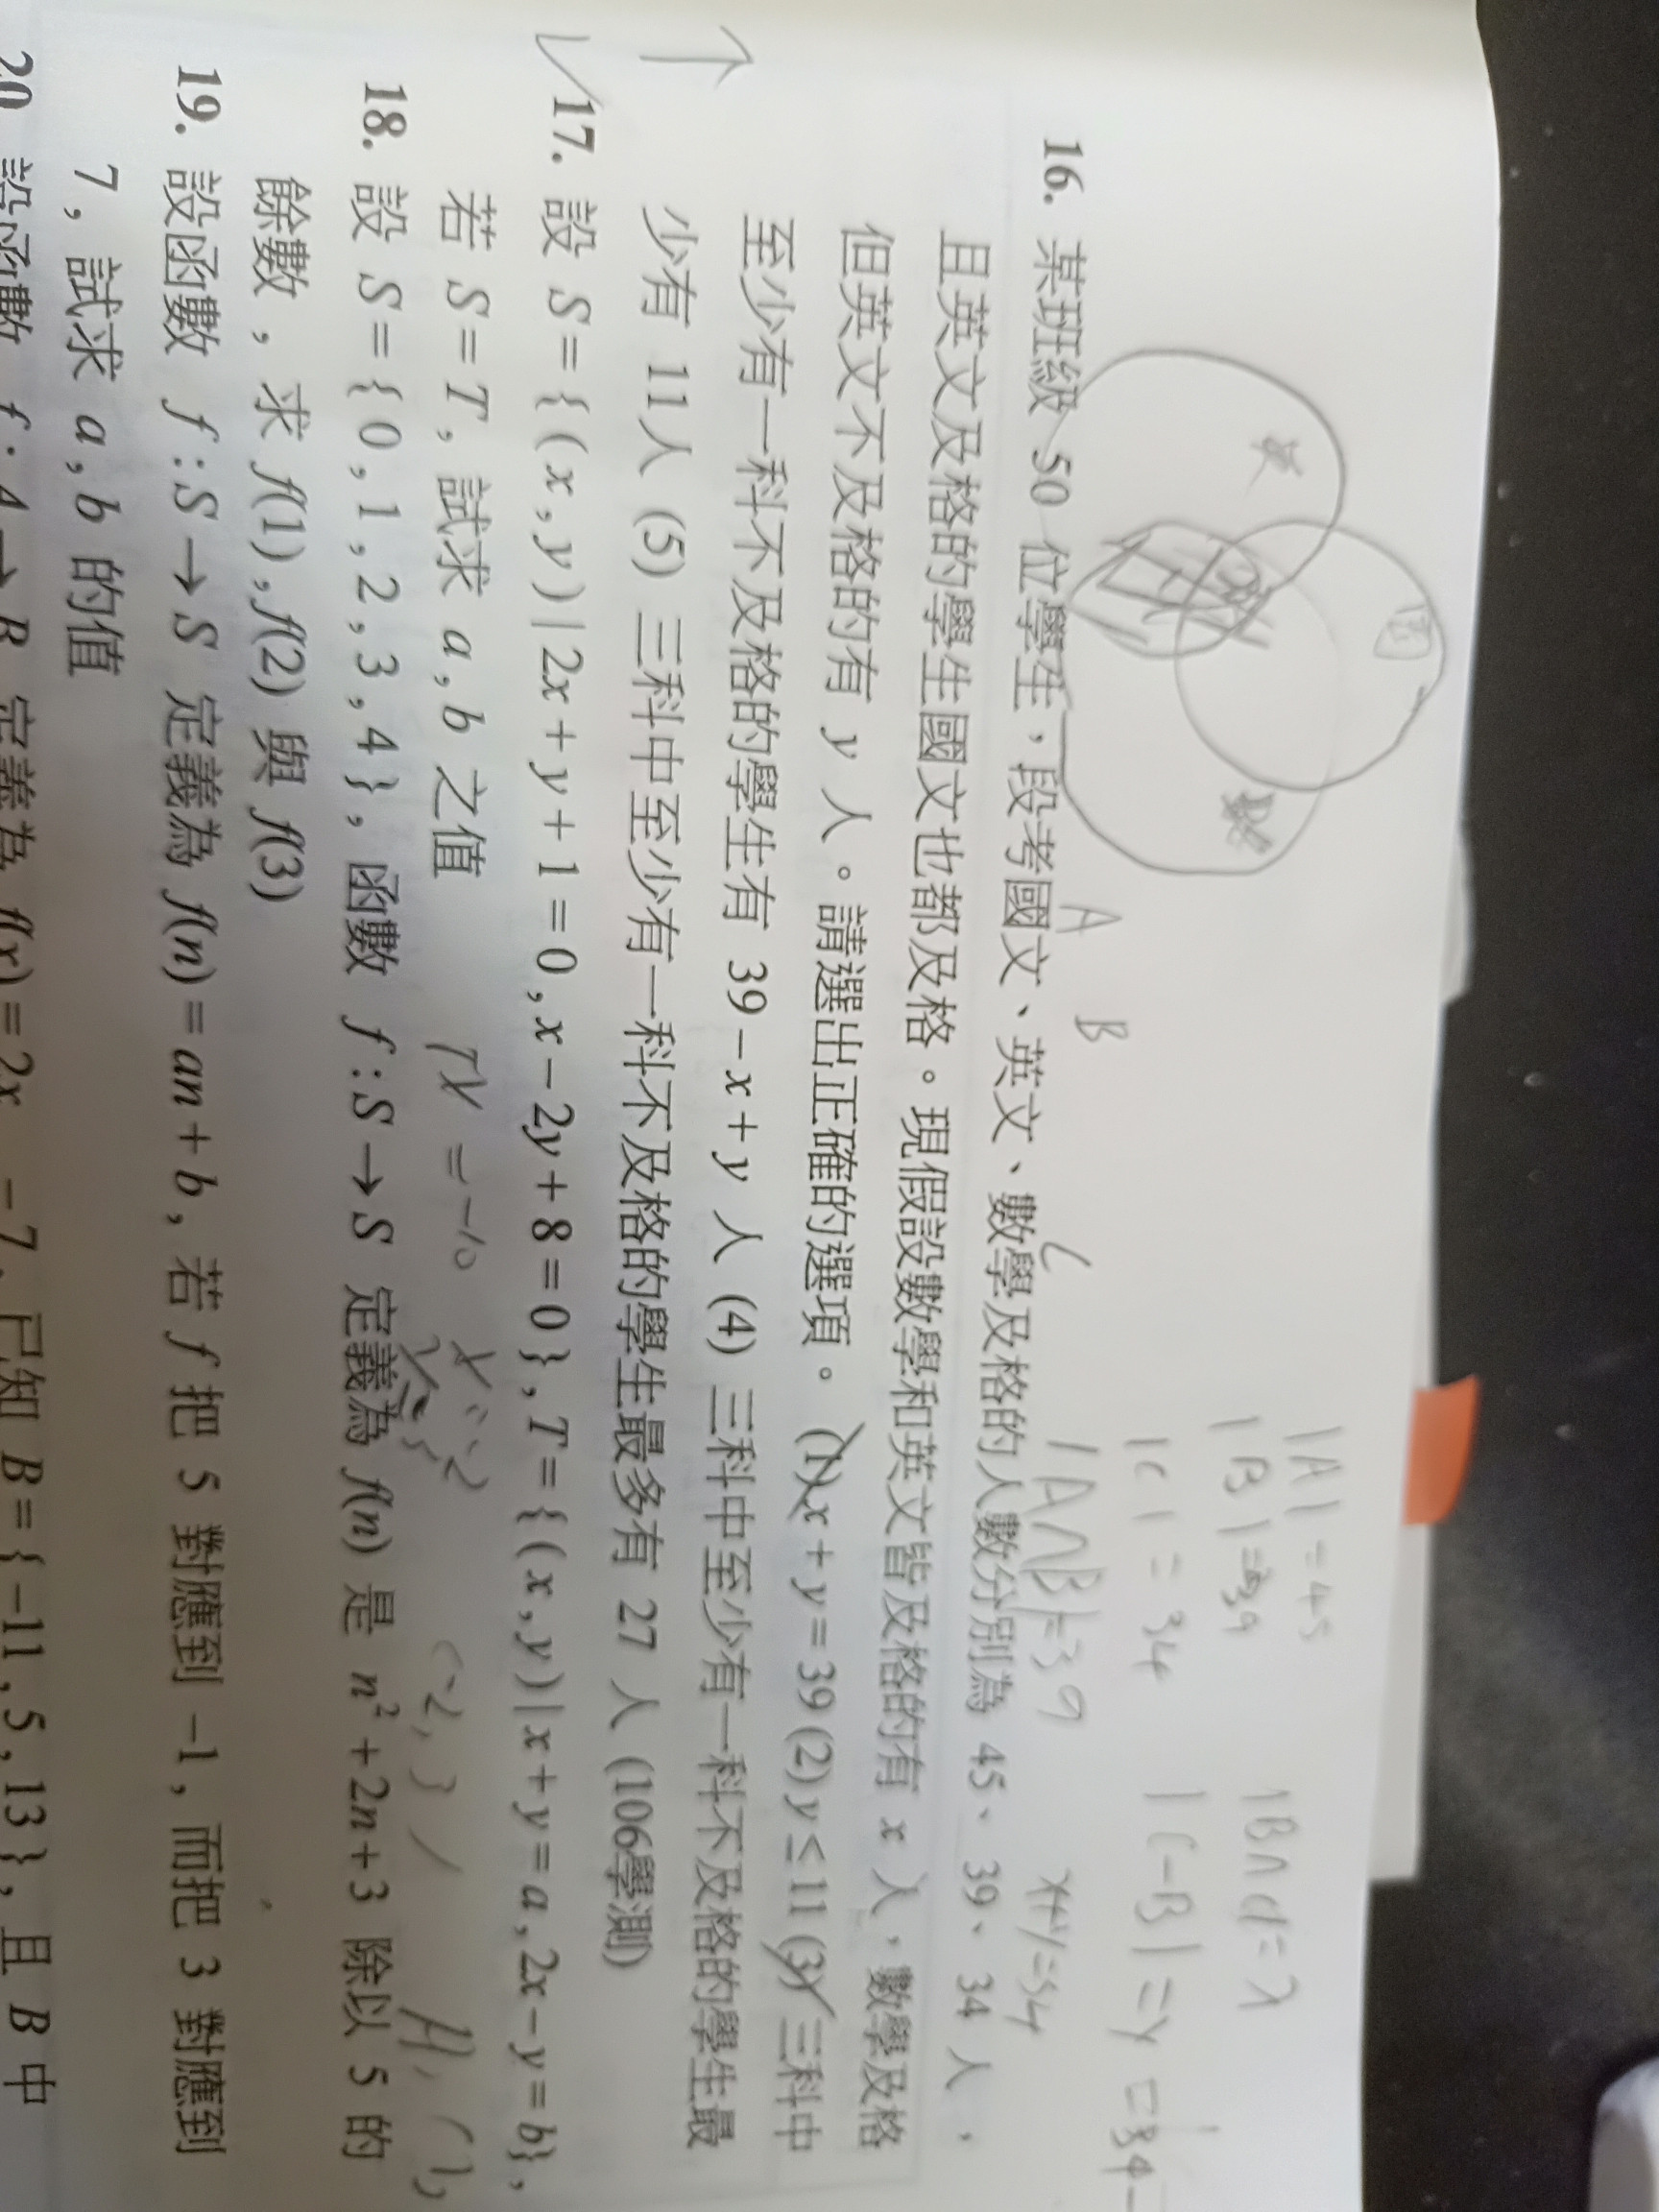 |A| = 45
|B| = 39
|B∩C| = x
|C| = 34
|C-B| = y = 34-
英
國
數
A
B
C
|A∩B| = 39
x+y=34
16. 某班級 50 位學生，段考國文、英文、數學及格的人數分別為 45、39、34 人，
且英文及格的學生國文也都及格。現假設數學和英文皆及格的有 x 人，數學及格
但英文不及格的有 y 人。請選出正確的選項。 (1) x + y = 39 (2) y ≤ 11 (3) 三科中
至少有一科不及格的學生有 39 − x + y 人 (4) 三科中至少有一科不及格的學生最
少有 11人 (5) 三科中至少有一科不及格的學生最多有 27 人 (106學測)
17. 設 S = { ( x , y ) | 2x + y + 1 = 0 , x − 2y + 8 = 0 } , T = { ( x , y ) | x + y = a , 2x − y = b} ,
若 S = T , 試求 a , b 之值
x = -10
x = -2
y = 3
(-2, 3)
18. 設 S = { 0 , 1 , 2 , 3 , 4 } , 函數 f : S → S 定義為 f(n) 是 n² + 2n + 3 除以 5 的
餘數 , 求 f(1) , f(2) 與 f(3)
19. 設函數 f : S → S 定義為 f(n) = an + b , 若 f 把 5 對應到 −1 , 而把 3 對應到
7 , 試求 a , b 的值
20. 設函數 f : A → B 定義為 f(x) = 2x − 7 , 已知 B = { −11 , 5 , 13 } , 且 B 中